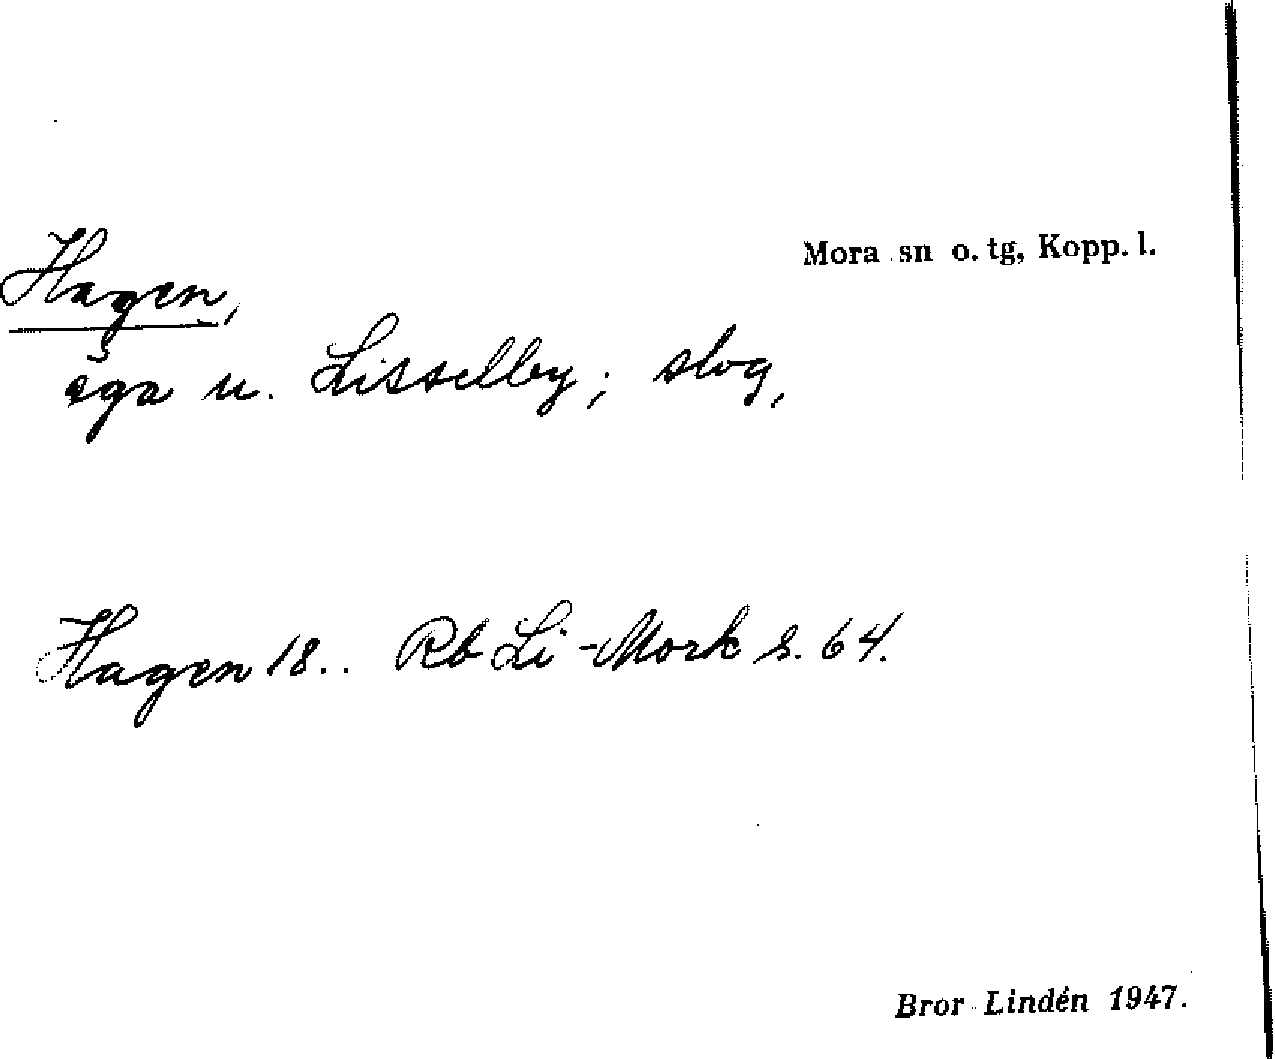 Mora sn o. tg, Kopp. l.
Hagen,
äga u. Lisselby; slog,
Hagen 18.. Rb Li-Mork s. 64.
Bror Lindén 1947.